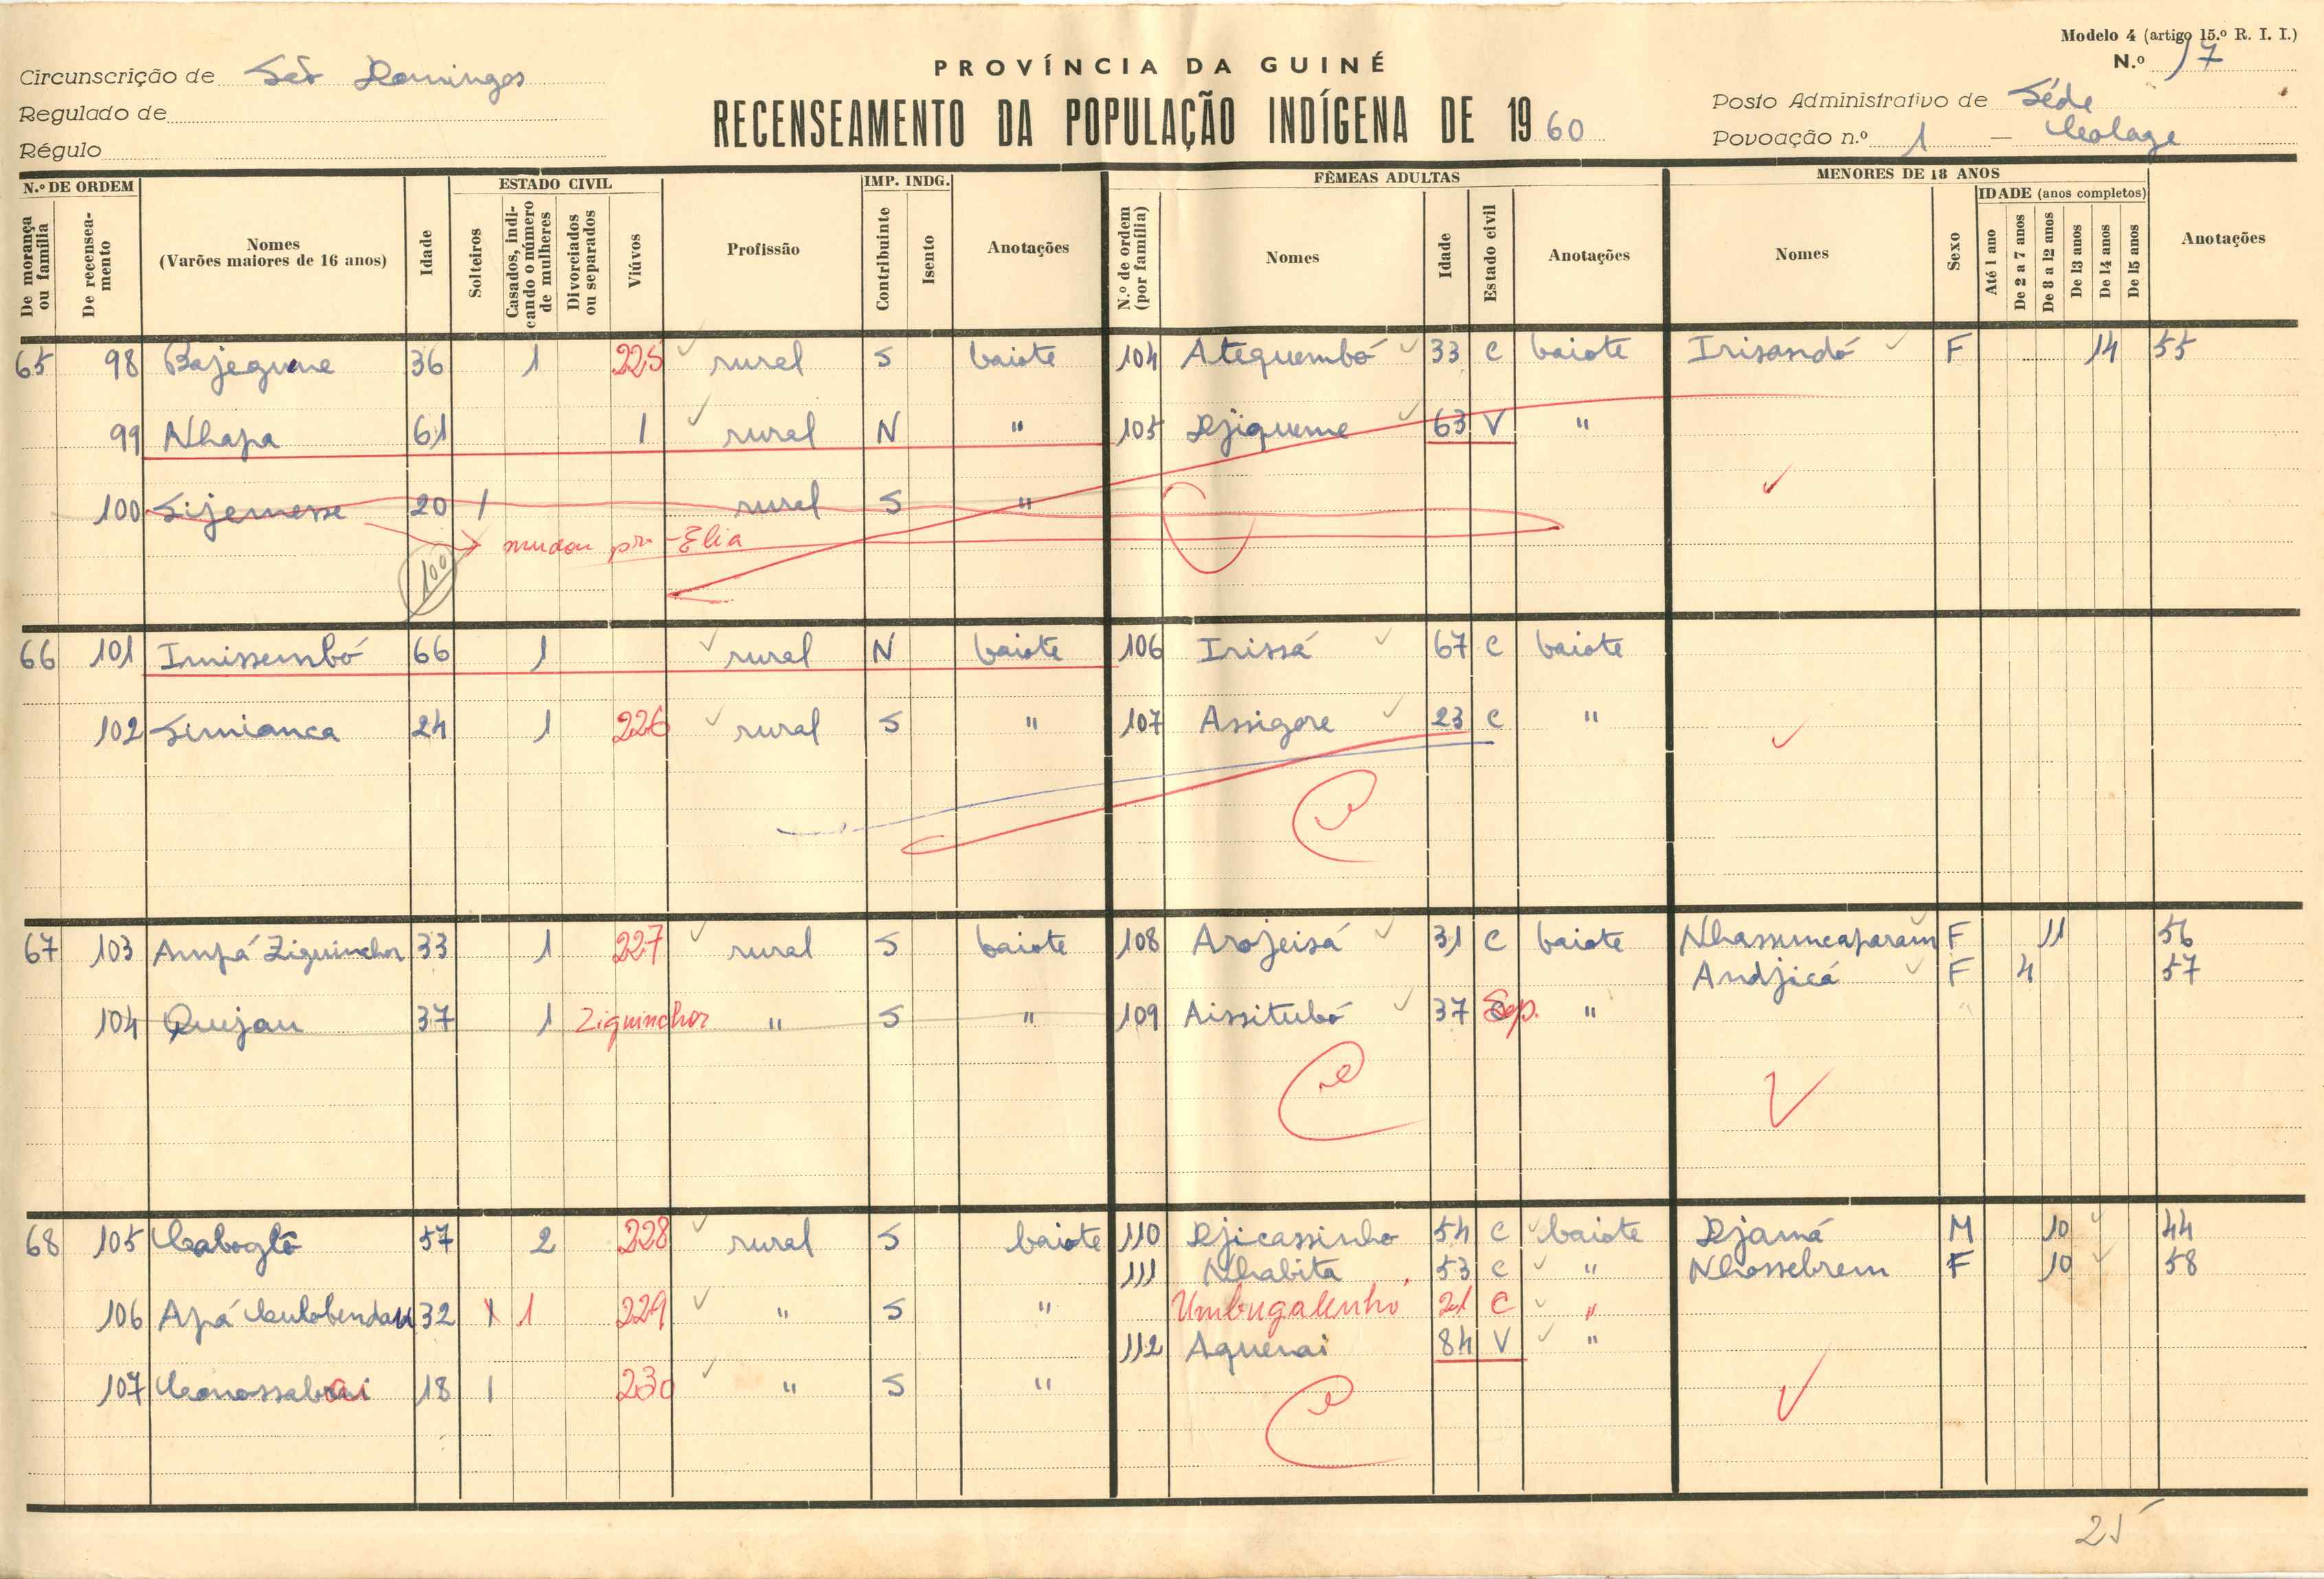 Modelo 4 (artigo 15.º R. I. I.)
PROVÍNCIA DA GUINÉ
N.º 17
Circunscrição de São Domingos
RECENSEAMENTO DA POPULAÇÃO INDÍGENA DE 1960
Posto Administrativo de Séde
Regulado de
Povoação n.º 1 —
Régulo
N.º DE ORDEM ESTADO CIVIL IMP. INDG. FÊMEAS ADULTAS MENORES DE 18 ANOS
De morança ou família
De recenseamento
Nomes
(Varões maiores de 16 anos)
Idade
Solteiros
Casados, indicando o número de mulheres
Divorciados ou separados
Viúvos
Profissão
Contribuinte
Isento
Anotações
N.º de ordem (por família)
Nomes
Idade
Estado civil
Anotações
Nomes
Sexo
IDADE (anos completos)
Até 1 ano
De 2 a 7 anos
De 8 a 12 anos
De 13 anos
De 14 anos
De 15 anos
Anotações
65 98 Bajegume 36 1 225 rural S baiote 104 Atequembó 33 C baiote Irisandó F 14 55
99 Nhapa 61 1 rural N " 105 Djiqueme 63 V "
100 Sijemesse 20 1 rural S "
mudou pra Elia
100
66 101 Imissembó 66 1 rural N baiote 106 Irissá 67 C baiote
102 Simianca 24 1 226 rural S " 107 Assigore 23 C "
67 103 Ampá Ziguinchor 33 1 227 rural S baiote 108 Arojeisá 31 C baiote Nhassumcaparam F 11 56
Andjicá F 4 57
104 Quejau 37 1 Ziguinchor " S " 109 Aissitubó 37 Sep. "
68 105 Cabogtô 57 2 228 rural S baiote 110 Djicassinho 54 C baiote Djamá M 10 44
111 Nhabita 53 C " Nhossebrem F 10 58
106 Apá Culobendau 32 1 1 229 " S " Umbugalenhó 21 C "
112 Aquenai 84 V "
107 Conossabai 18 1 230 " S "
25